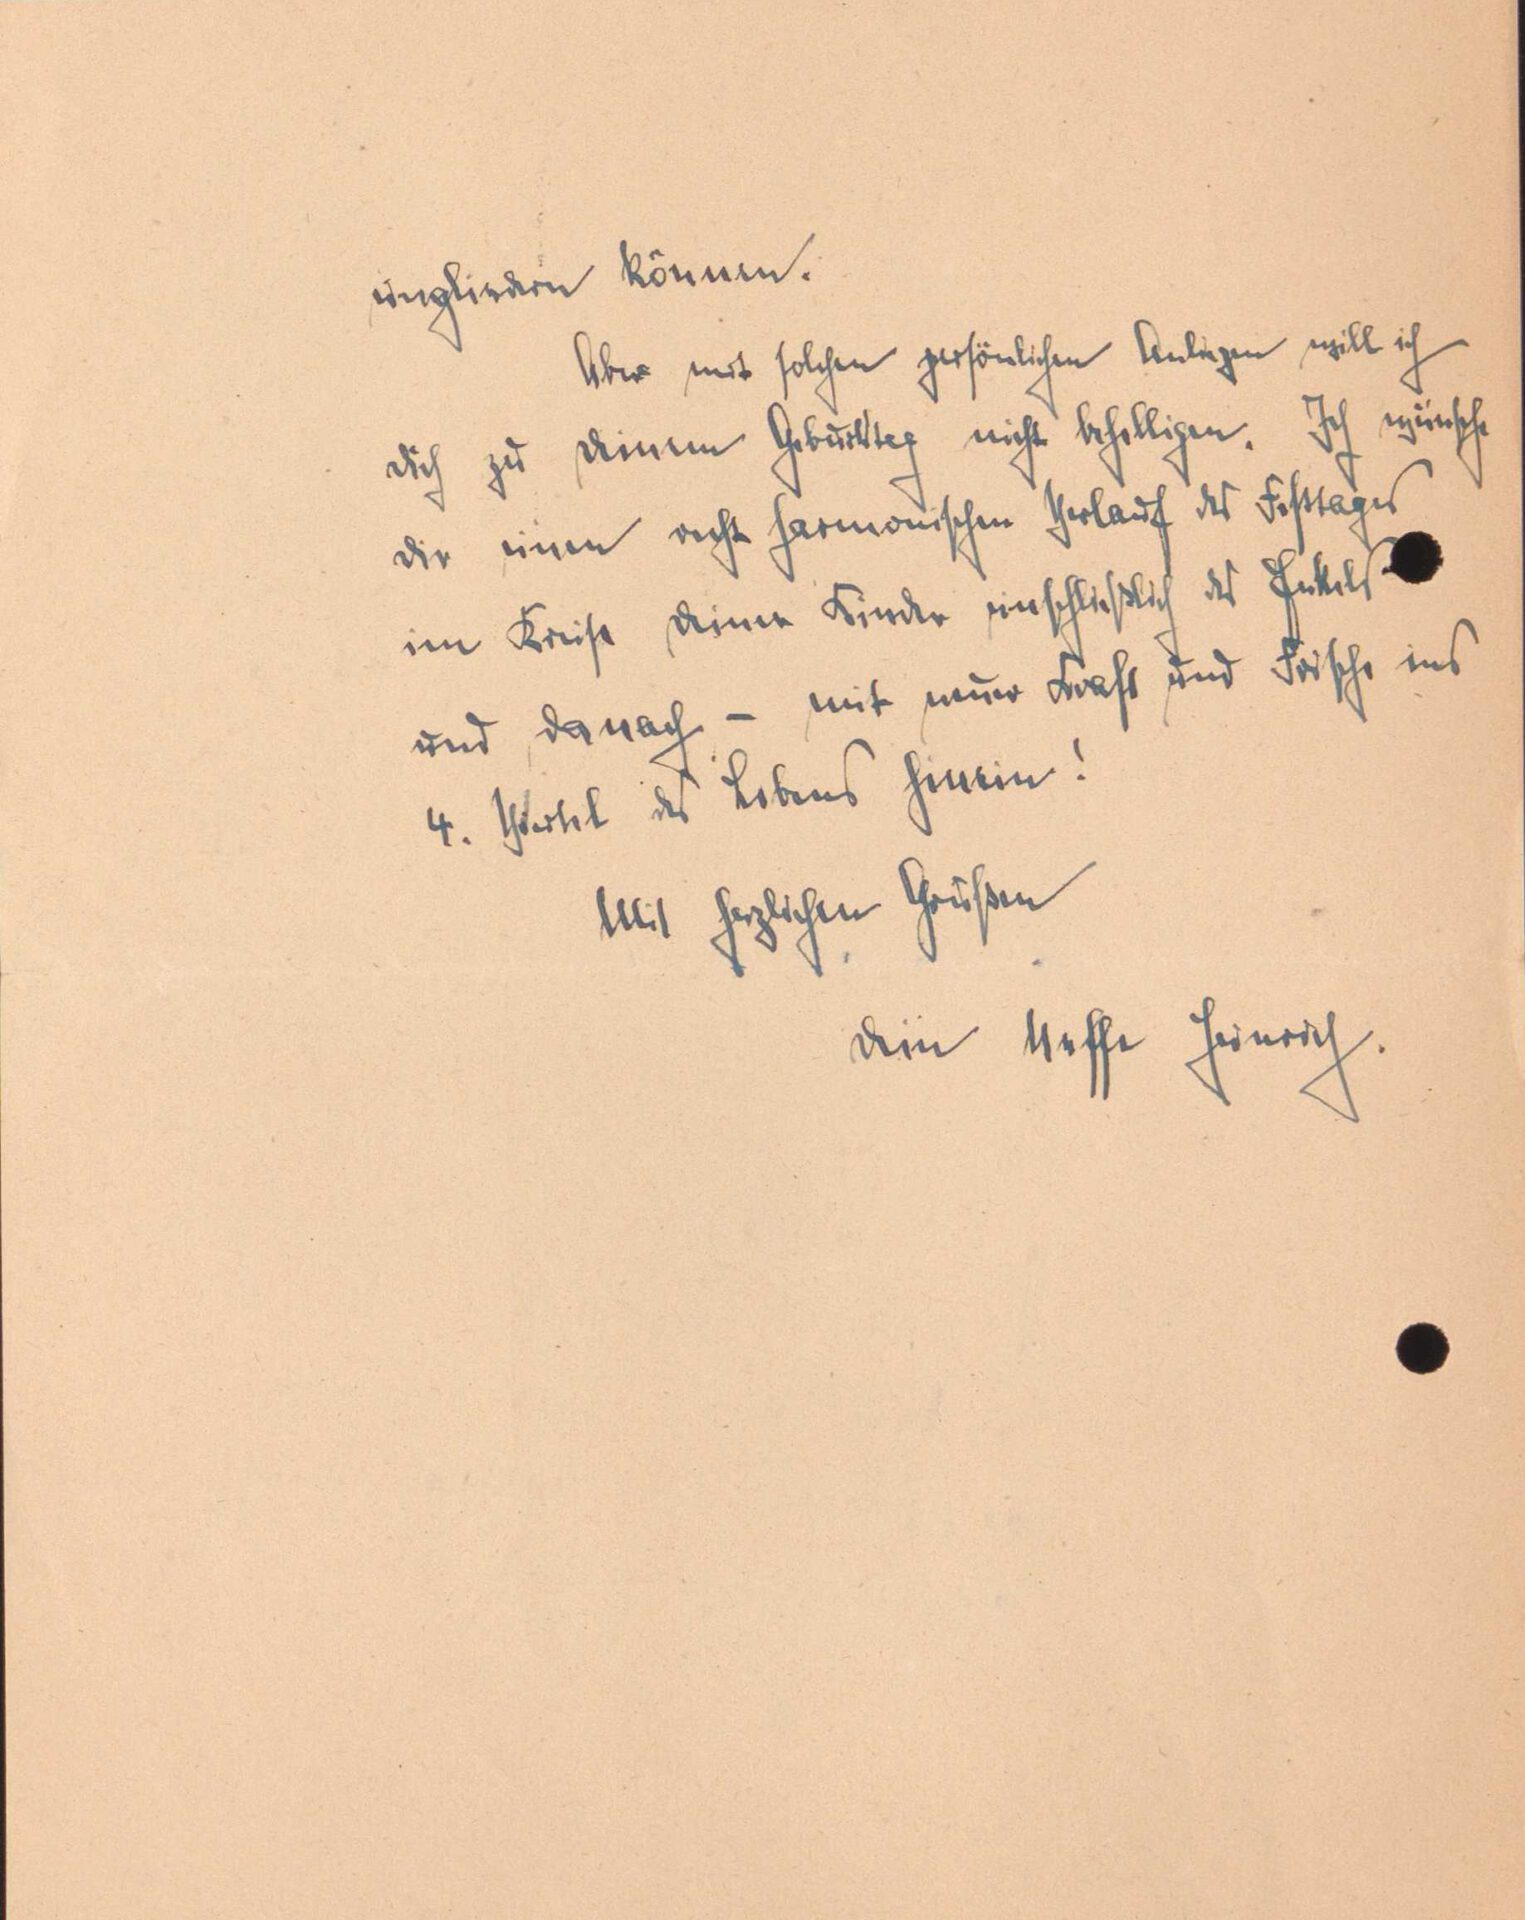 eingliedern können.
Aber mit solchen persönlichen Anliegen will ich
dich zu deinem Geburtstag nicht behelligen. Ich wünsche
dir einen recht harmonischen Verlauf des Festtages
im Kreise deiner Kinder einschließlich des Enkels
und danach – mit neuer Kraft und Frische ins
4. Viertel des Lebens hinein!
Mit herzlichen Grüßen
dein Neffe Heinrich.